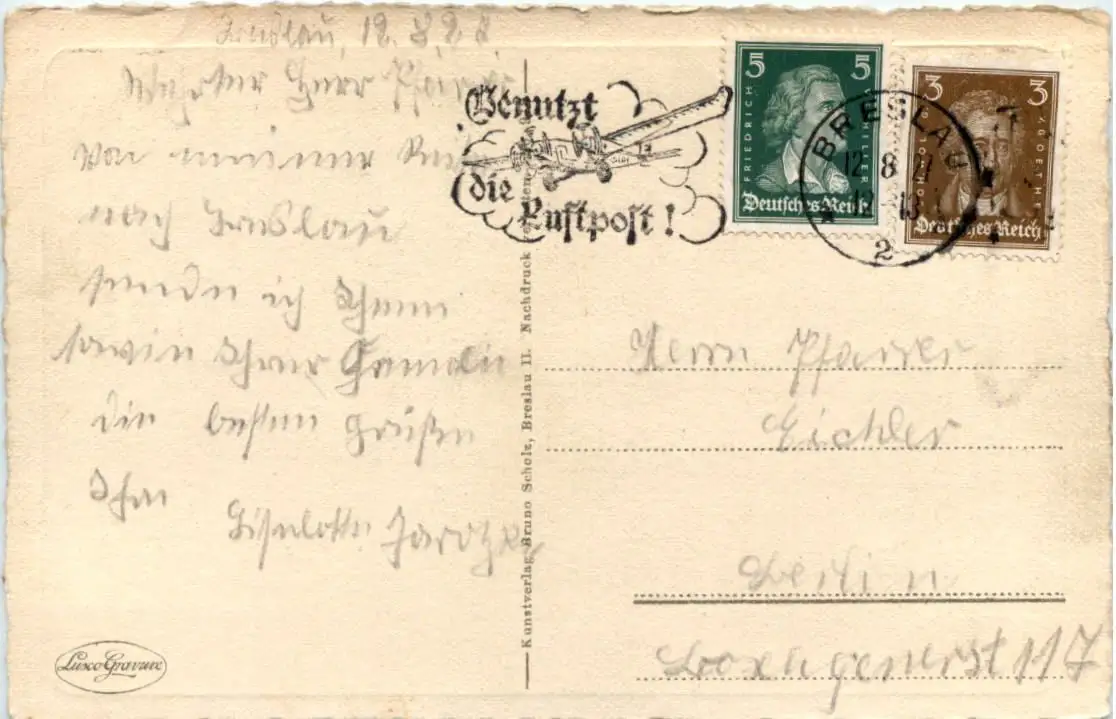 Breslau, 12. 8. 28.
Werter Herr Pfarrer
Von meiner Reise
nach Breslau
sende ich Ihnen
sowie Ihrer Familie
die besten Grüße
Ihre
Liselotte
Benutzt
die
Luftpost!
5 5
FRIEDRICH SCHILLER
Deutsches Reich
3 3
Deutsches Reich
BRESLAU
12 8
2
Kunstverlag Bruno Scholz, Breslau II. Nachdruck
Herrn Pfarrer
Eichler
Berlin
Boxhagenerst 117
Luxo Gravure